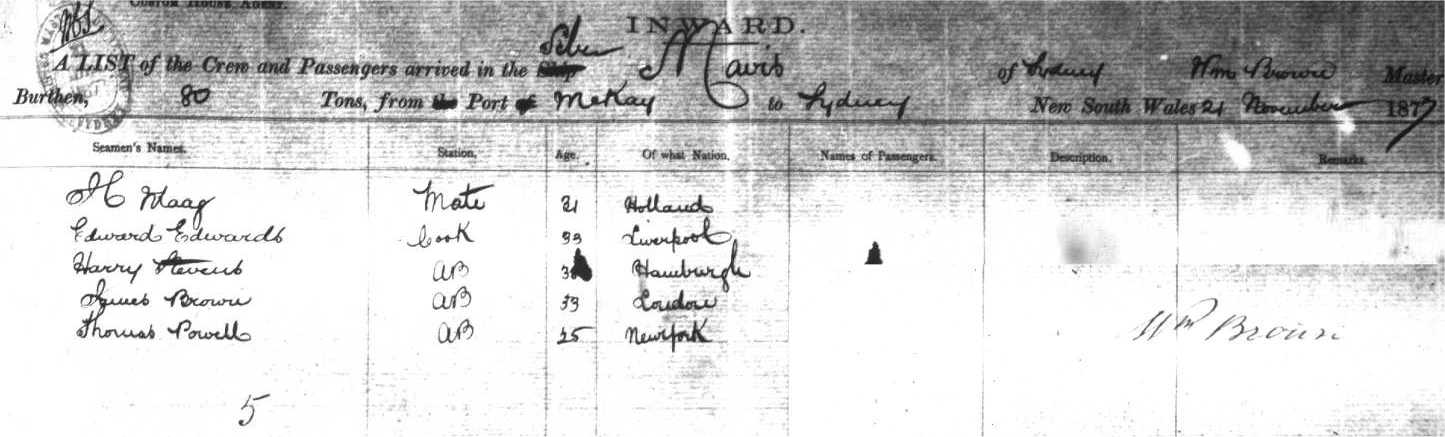 CUSTOM HOUSE AGENT.
INWARD.
A LIST of the Crew and Passengers arrived in the Ship Schr Mavis of Sydney Wm Brown Master
Burthen, 80 Tons, from the Port of McKay to Sydney New South Wales 21 November 1877
Seamen's Names. Station. Age. Of what Nation. Names of Passengers. Description. Remarks.
H Maag Mate 21 Holland
Edward Edwards Cook 33 Liverpool
Harry Stevens AB Hamburgh
James Brown AB 33 London
Thomas Powell AB 25 Newyork
Wm Brown
5